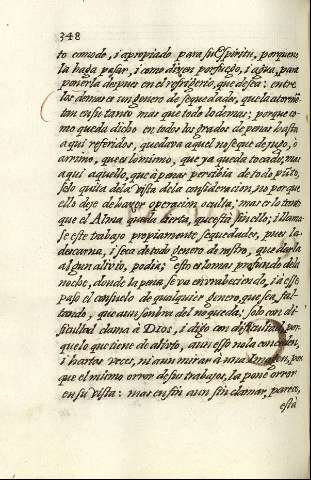 348
to comodo, i apropiado para su Espiritu, porque no
la haga pasar, i como diçen por fuego, i agua, para
ponerla despues en el refrigerio, que desea: entre
los demas es un genero de sequedades, que la atormẽ
tan en su tanto mas que todo lo demas; porque co=
mo queda dicho en todos los grados de penar hasta
aqui referidos, quedava aquel no se que de jugo, o
arrimo, que es lo mismo, que ya queda tocado, mas
aqui aquello, que a penar perdia de todo pũto,
solo quita de la vista de la consideracion, no porque
ello deje de haver operacion oculta, mas es lo tanto
que el Alma queda cierta, que está sin ello; i llama
se este trabajo propiamente, sequedades, pues la
descarna, i seca de todo genero de rastro, que darla
algun alivio, podia; esto es lo mas profundo de la
noche, donde la pena se va enrabeciendo, i a ese
paso el consuelo de qualquier genero, que sea, fal=
tando, que aun sombra del no queda; solo con di=
ficultad clama à Dios, i digo con dificultad, por
que lo que tiene de alivio, aun eso no la conceden,
i hartas veces, ni aun mirar à una Imagen, por
que el mismo orror de sus trabajos, la pone orror
en su vista: mas en fin aun sin clamar, pareçe,
està